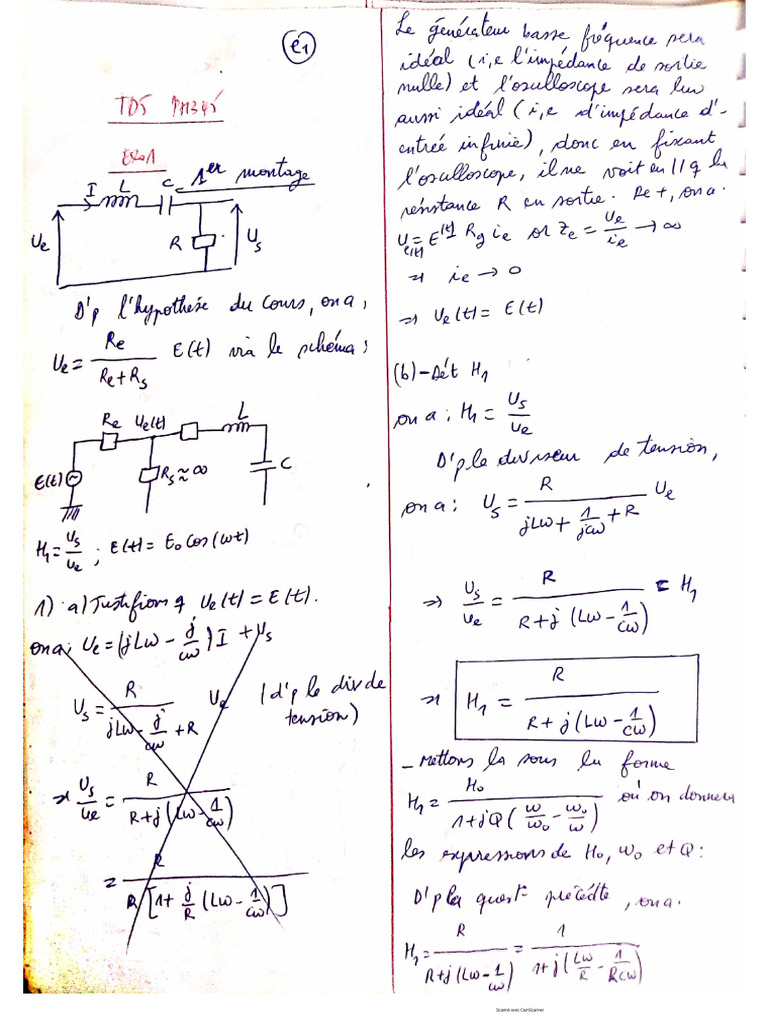 e1
TD5 PM345
Exo1
1er montage
I L C
Ue R Us
D'p l'hypothèse du cours, on a;
Ue = Re / (Re + Rs) E(t) via le schéma:
Re Ue(t) L
E(t) Rs ≈ ∞ C
H1 = Us/Ue ; E(t) = E0 cos(ωt)
1) a) Justifions q Ue(t) = E(t).
on a; Ue = (jLω - j/cω) I + Us
Us = R / (jLω - j/cω + R) Ue (d'p le div de
tension)
⇒ Us/Ue = R / (R + j(Lω - 1/cω))
= R / (R[1 + j/R (Lω - 1/cω)])
Le générateur basse fréquence sera
idéal (i,e l'impédance de sortie
nulle) et l'oscilloscope sera lui
aussi idéal (i,e d'impédance d'-
entrée infinie), donc en fixant
l'oscilloscope, il ne voit en // q la
résistance R en sortie. Re+, on a.
Ue(t) = E(t) Rg ie or Ze = Ue/ie → ∞
⇒ ie → 0
⇒ Ue(t) = E(t)
(b) - Dét H1
on a; H1 = Us/Ue
D'p le diviseur de tension,
on a: Us = R / (jLω + 1/jcω + R) Ue
⇒ Us/Ue = R / (R + j(Lω - 1/cω)) = H1
⇒ H1 = R / (R + j(Lω - 1/cω))
- Mettons la sous la forme
H1 = H0 / (1 + jQ(ω/ω0 - ω0/ω)) où on donnera
les expressions de H0, ω0 et Q:
D'p la quest° précédte, on a.
H1 = R / (R + j(Lω - 1/cω)) = 1 / (1 + j(Lω/R - 1/Rcω))
Scanné avec CamScanner